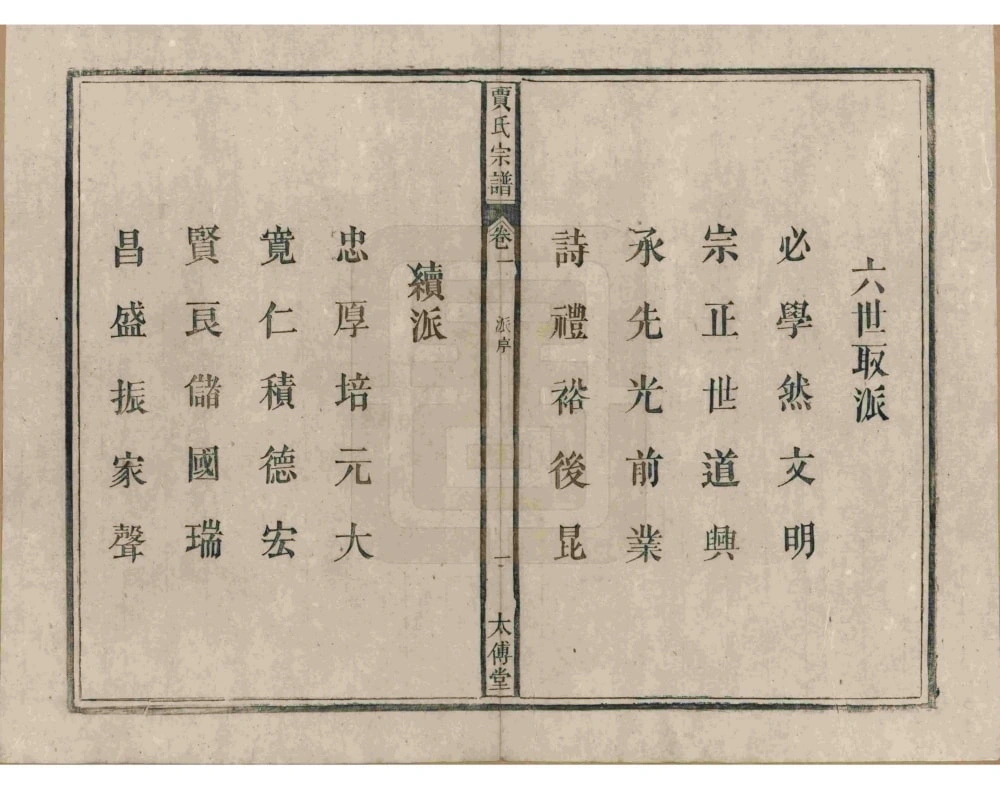 六世取派
必學然文明
宗正世道興
承先光前業
詩禮裕後昆
賈氏宗譜
卷二
派序
一
太傅堂
續派
忠厚培元大
寬仁積德宏
賢良儲國瑞
昌盛振家聲